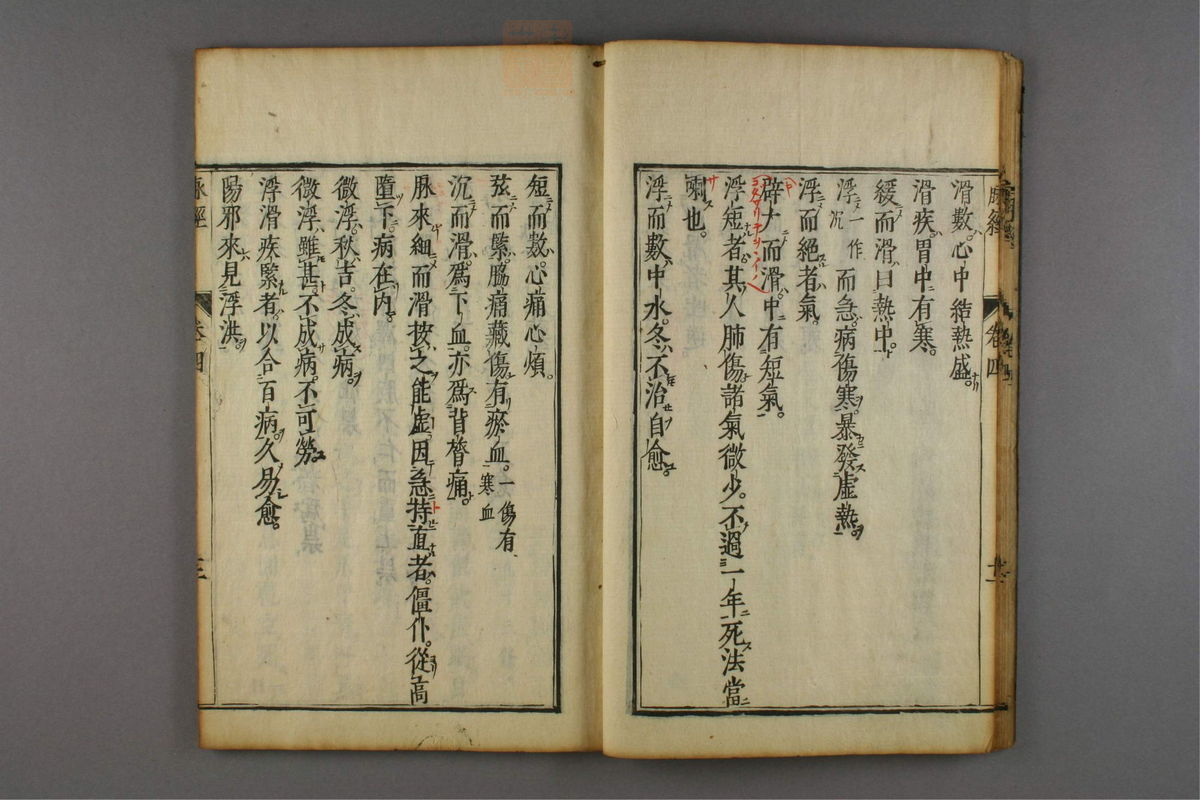 滑數心中結熱盛。
滑疾胃中有寒。
緩而滑曰熱中。
浮一作沉而急。病傷寒。暴發虛熱。
浮而絕者氣。
辟大而滑。中有短氣。
浮短者。其人肺傷。諸氣微少。不過一年死。法當
嗽也。
浮而數。中水。冬不治自愈。
短而數。心痛心煩。
弦而緊。脇痛。藏傷有瘀血。一傷有寒血
沉而滑。爲下血。亦爲背膂痛。
脉來細而滑。按之能虛。因急持直者。僵仆。從高
墮下。病在內。
微浮。秋吉。冬成病。
微浮。雖甚。不成病。不可勞。
浮滑疾緊者。以合百病。久易愈。
陽邪來見浮洪。
脉經
卷四
三